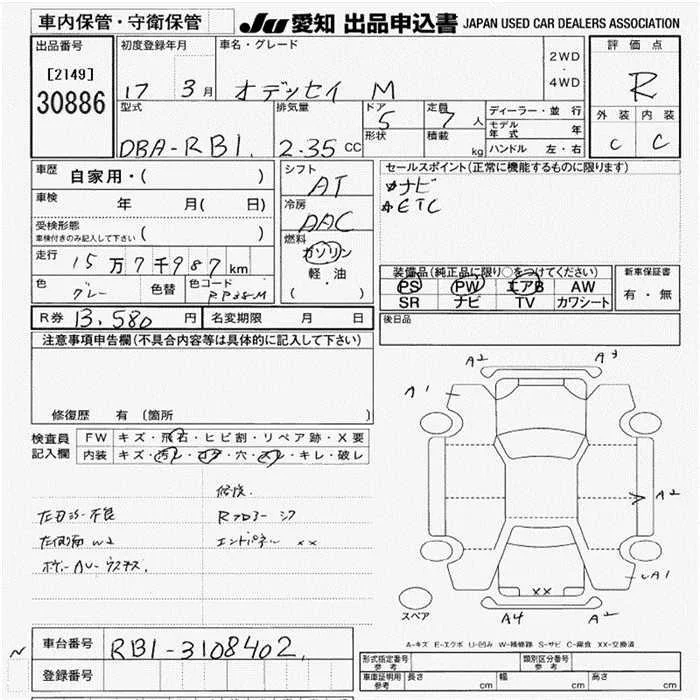 車内保管・守衛保管
JU 愛知 出品申込書 JAPAN USED CAR DEALERS ASSOCIATION
出品番号
[2149]
30886
初度登録年月
17 3月
車名・グレード
オデッセイ M
2WD
・
4WD
評価点
R
外装 内装
C C
型式
DBA-RB1.
排気量
2.35 CC
ドア
5
形状
定員
7 人
積載
kg
ディーラー・並行
モデル年式 年
ハンドル 左・右
車歴
自家用・( )
車検
年 月( 日)
受検形態
車検付きのみ記入して下さい ( )
走行
15万7千987km
色
グレー
色替
色コード
シフト
AT
冷房
AAC
燃料
ガソリン
軽・油
( )
セールスポイント(正常に機能するものに限ります)
ナビ
ETC
装備品(純正品に限り○をつけてください)
PS PW エアB AW
SR ナビ TV カワシート
新車保証書
有・無
R券 13,580 円
名変期限 月 日
後日品
注意事項申告欄(不具合内容等は具体的に記入して下さい)
修復歴 有 (箇所
検査員
記入欄
FW キズ・飛石・ヒビ割・リペア跡・X要
内装 キズ・汚レ・コゲ・穴・スレ・キレ・破レ
修復.
Rフロアー
エンドパネル xx
W2
ボデーAU
A2
A3
A1
A2
A1
xx
A4
A2
スペア
A-キズ E-エクボ U-凹み W-補修跡 S-サビ C-腐食 XX-交換済
車台番号
RB1-3108402
登録番号
形式指定番号
参考
類別区分番号
参考
車庫証明用
参考
長さ cm 幅 cm 高さ cm